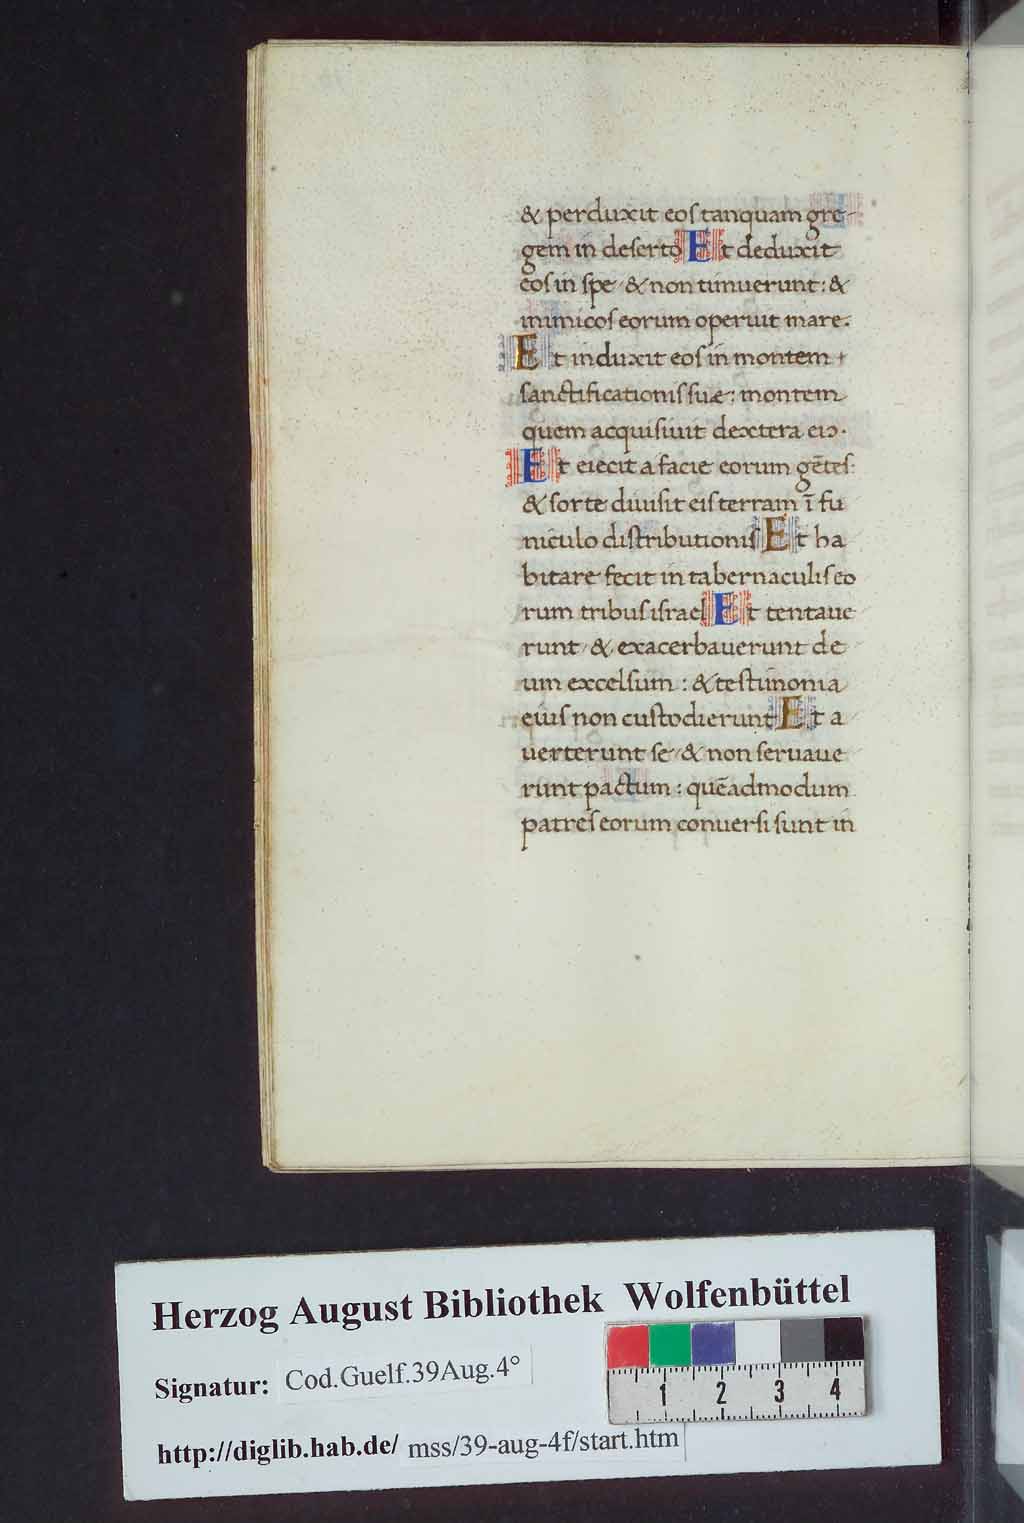 & perduxit eos tanquam gre-
gem in deserto Et deduxit
eos in spe & non timuerunt: &
inimicos eorum operuit mare.
Et induxit eos in montem
sanctificationis suæ: montem
quem acquisiuit dextera eiꝰ.
Et eiecit a facie eorum gētes:
& sorte diuisit eis terram ī fu
niculo distributionis Et ha
bitare fecit in tabernaculis eo
rum tribus israel Et tentaue
runt & exacerbauerunt de
um excelsum: & testimonia
eius non custodierunt Et a
uerterunt se & non seruaue
runt pactum: quēadmodum
patres eorum conuersi sunt in
Herzog August Bibliothek Wolfenbüttel
Signatur: Cod.Guelf.39Aug.4°
http://diglib.hab.de/ mss/39-aug-4f/start.htm
1 2 3 4